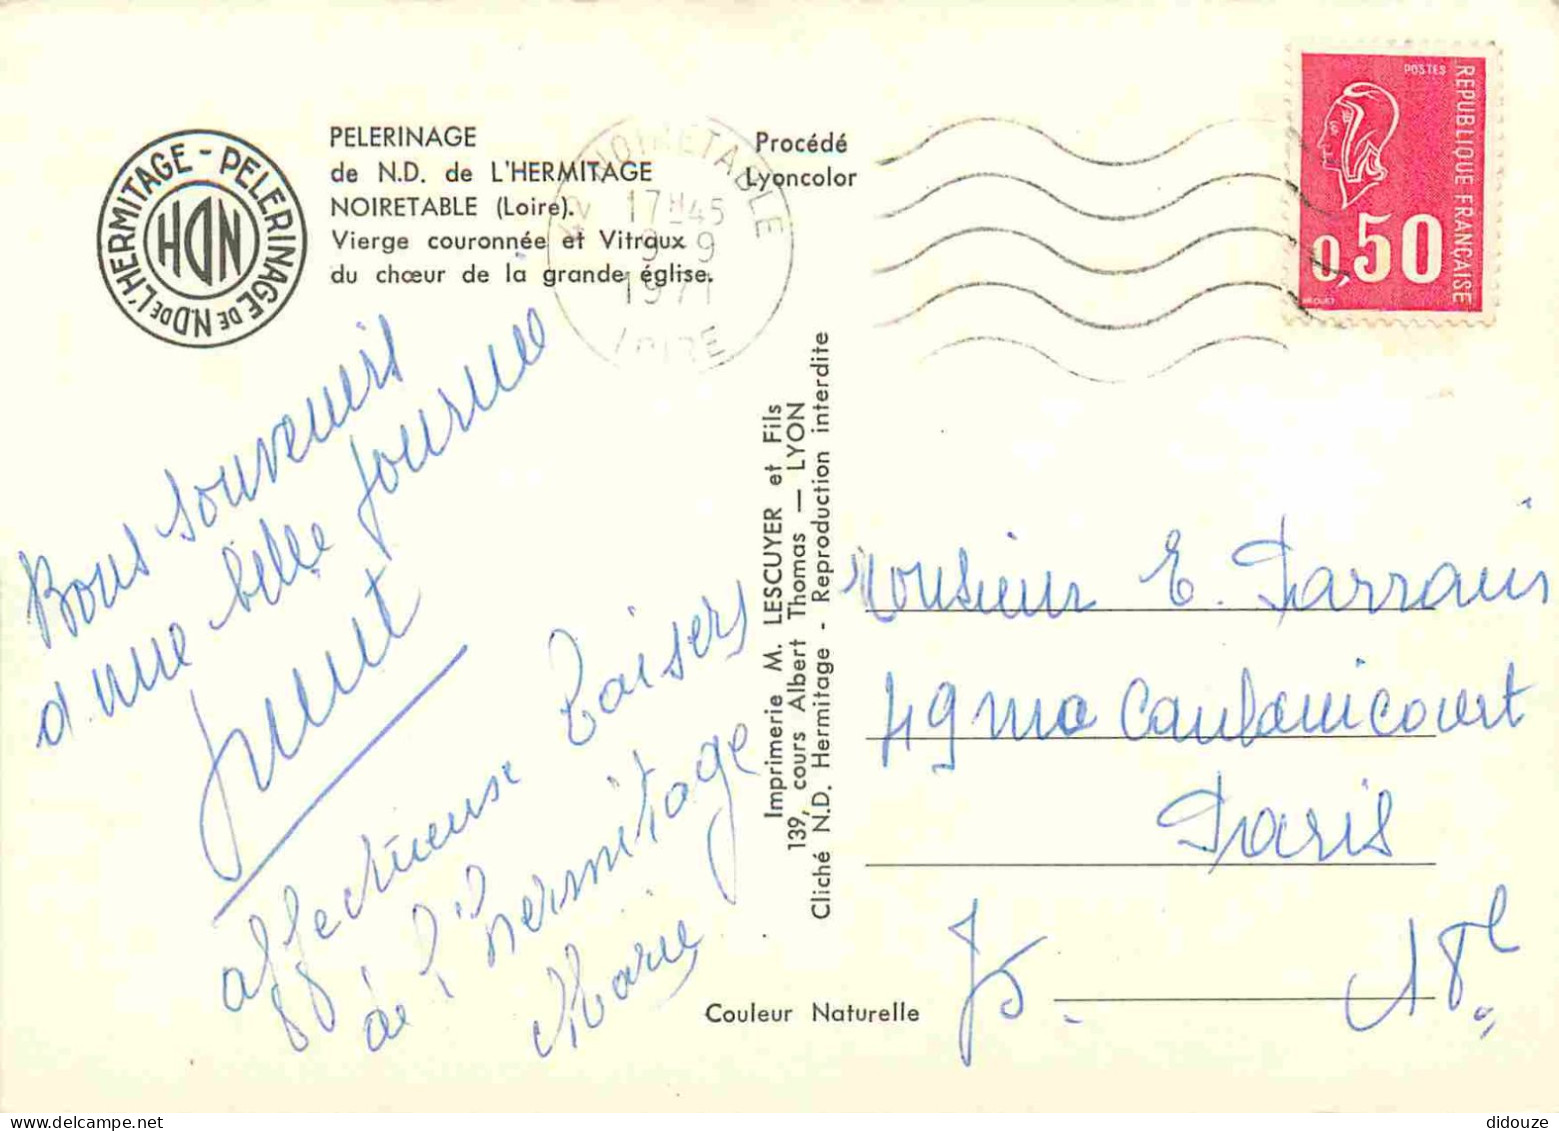 PELERINAGE DE N.D DE L'HERMITAGE -
HDN
PELERINAGE
de N.D. de L'HERMITAGE
NOIRETABLE (Loire).
Vierge couronnée et Vitraux
du chœur de la grande église.
42 NOIRETABLE
17H45
9-9
1971
LOIRE
Procédé
Lyoncolor
POSTES
REPUBLIQUE FRANÇAISE
0,50
Bons souvenirs
d'une belle journée
affectueuse baisers
de l'hermitage
Marie
Imprimerie M. LESCUYER et Fils
139, cours Albert Thomas — LYON
Cliché N.D. Hermitage - Reproduction interdite
Couleur Naturelle
Monsieur E. Parrain
49 Caulaincourt
Paris
75.
18e
didouze